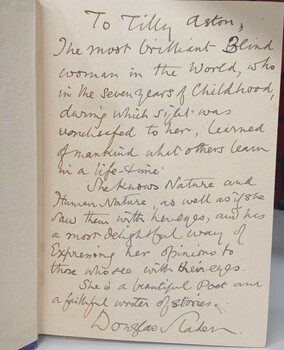 To Tilly Aston,
The most brilliant Blind
woman in the World, who
in the seven years of Childhood,
during which sight was
vouchsafed to her, learned
of mankind what others learn
in a life-time.
She knows Nature and
Human Nature, as well as if she
saw them with her eyes, and has
a most delightful way of
Expressing her opinions to
those who see with their eyes.
She is a beautiful Poet and
a faithful writer of stories.
Douglas Sladen.